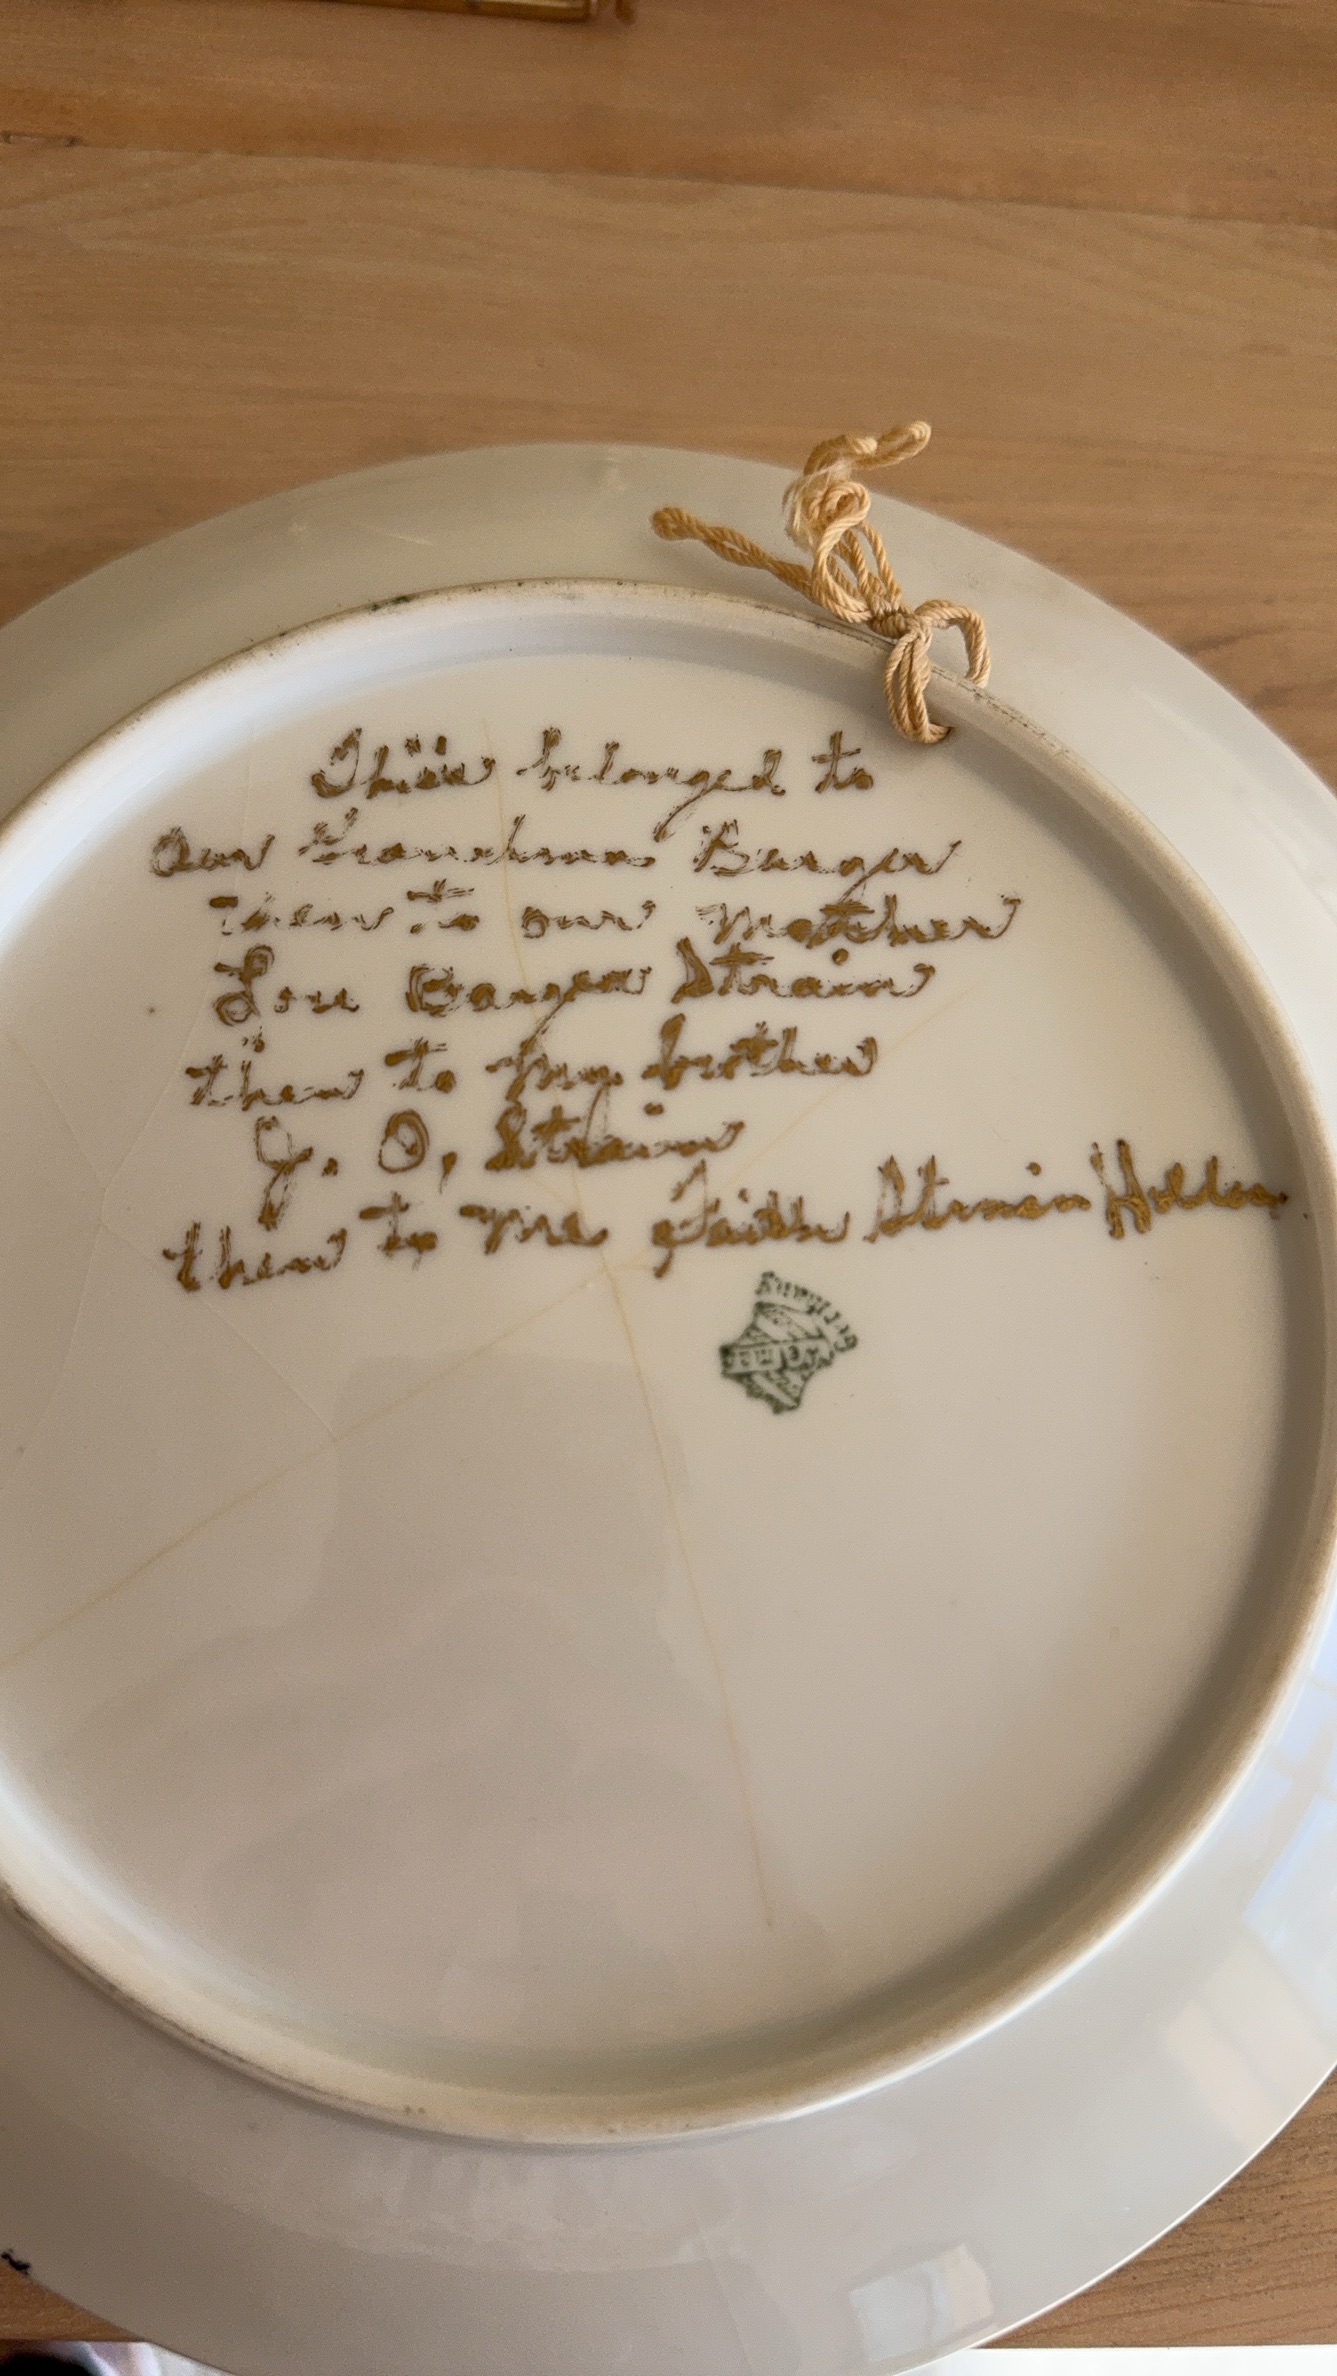 This belonged to
Our Grandma Burger
then to our Mother
Lou Burger Strain
then to my brother
J. O. Strain
then to me Faith Strain Holden
GERMANY